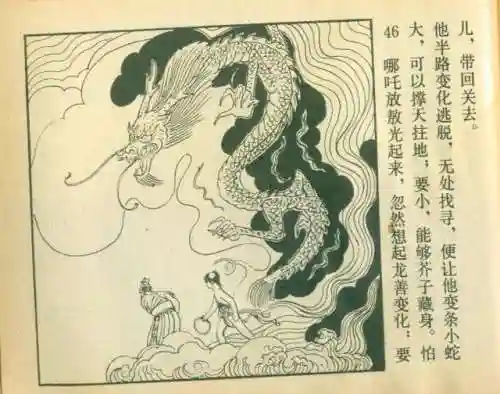 46 哪吒放敖光起来，忽然想起龙善变化：要
大，可以撑天拄地；要小，能够芥子藏身。怕
他半路变化逃脱，无处找寻，便让他变条小蛇
儿，带回关去。